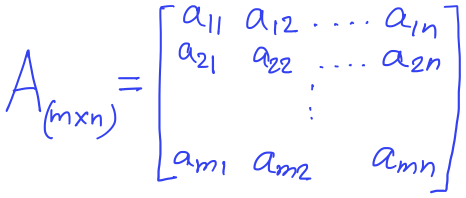 a11 a12 .... a1n
a21 a22 .... a2n
A(m×n) =
⋮
am1 am2 amn